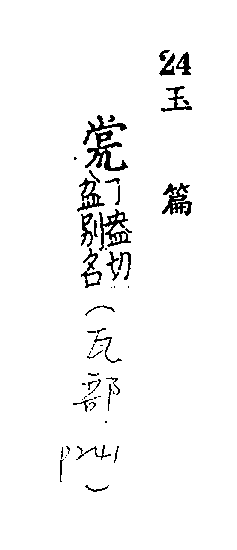 24玉篇
瓽
丁盎切
盆別名
（瓦部p241）